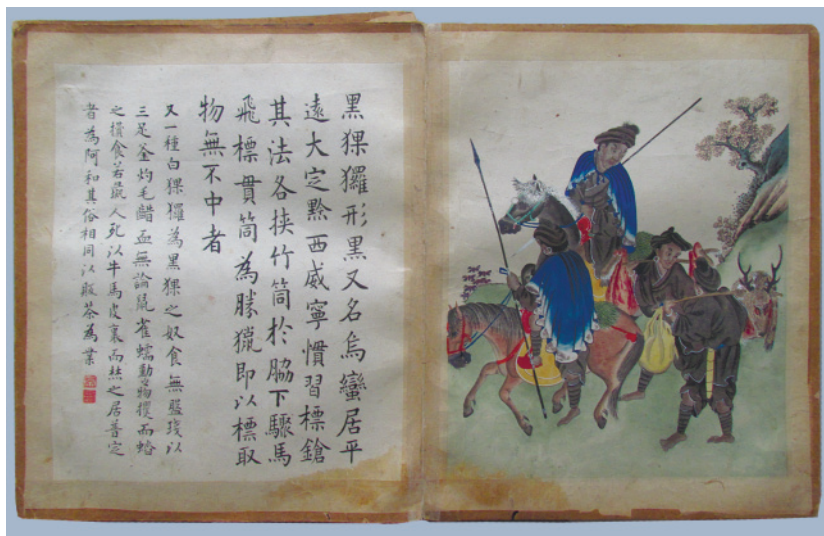 黑猓玀形黑又名烏蠻居平
遠大定黔西威寧慣習標鎗
其法各挾竹筒於脇下驟馬
飛標貫筒為勝獵即以標取
物無不中者
又一種白猓玀為黑猓之奴食無盤琖以
三足釜灼毛齰血無論鼠雀蠕動之物攫而燔
之攢食若彘人死以牛馬皮裹而焚之居普定
者為阿和其俗相同以販茶為業